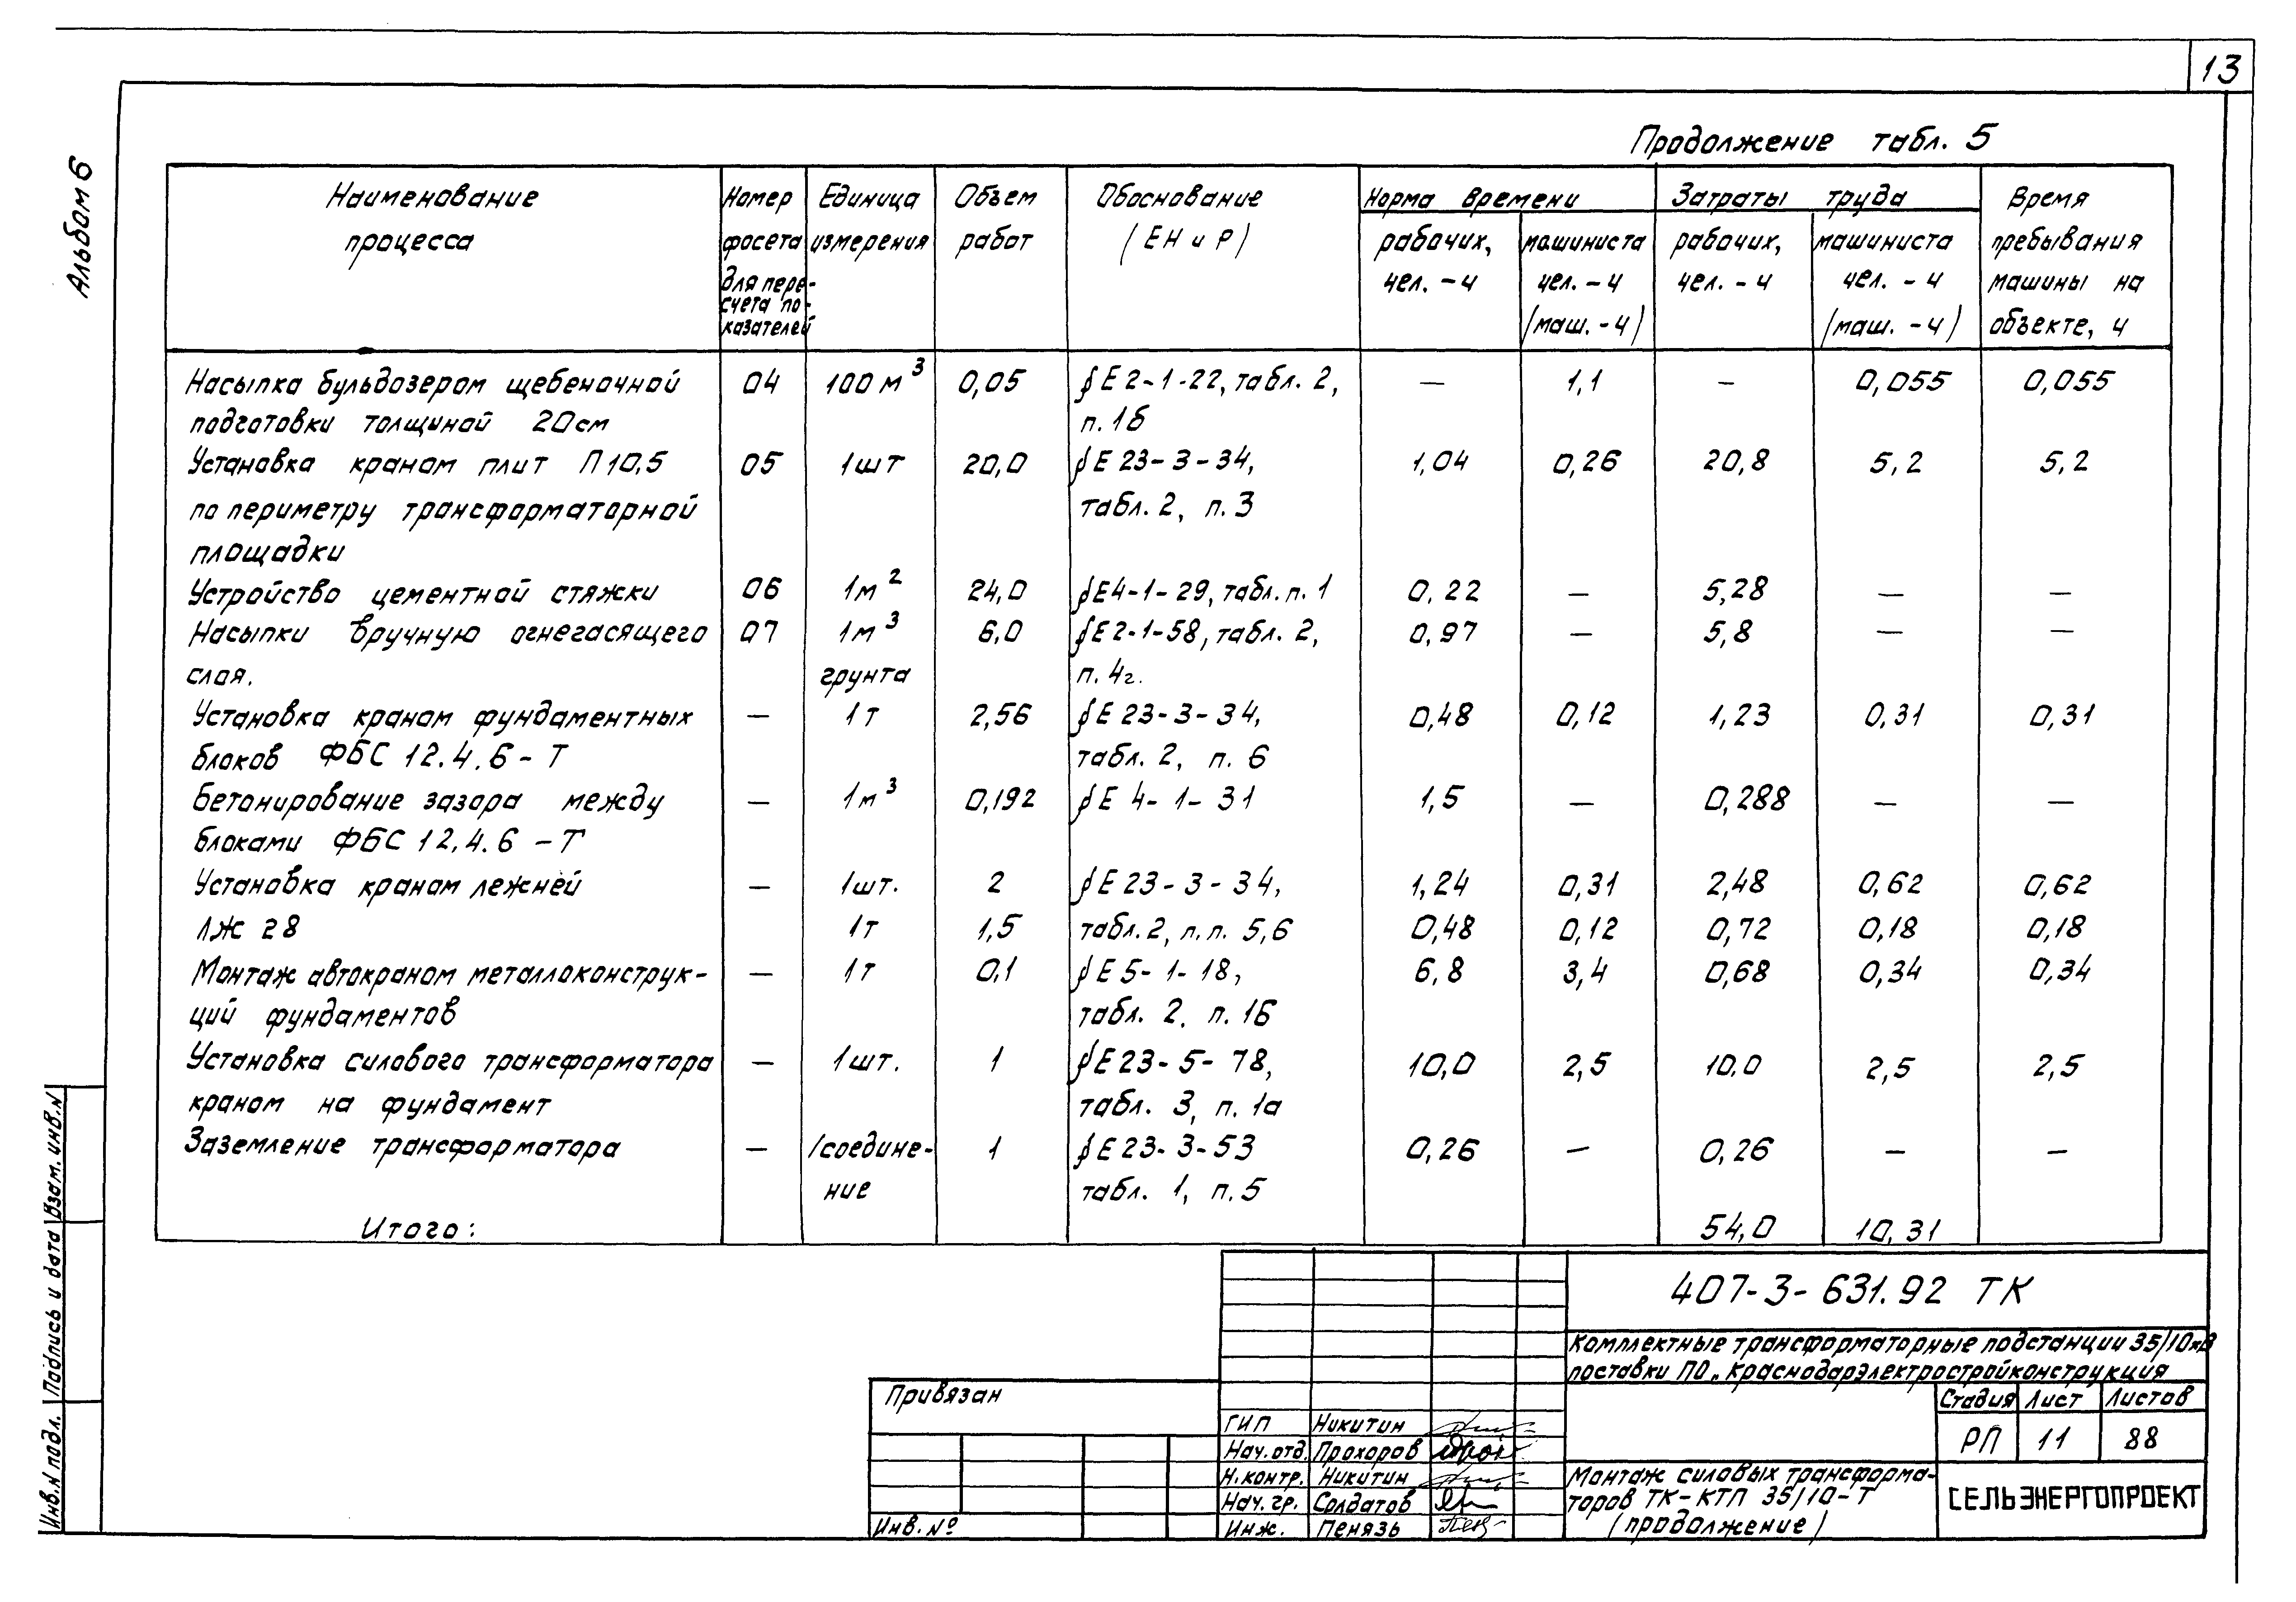 13
Альбом 6
Продолжение табл. 5
Наименование процесса | Номер фасета для пере- счета по- казателей | Единица измерения | Объем работ | Обоснование (ЕНиР) | Норма времени | Затраты труда | Время пребывания машины на объекте, ч
рабочих, чел. - ч | машиниста чел. - ч (маш. - ч) | рабочих, чел. - ч | машиниста чел. - ч (маш. - ч)
Насыпка бульдозером щебеночной | 04 | 100 м³ | 0,05 | § Е 2-1-22, табл. 2, | — | 1,1 | — | 0,055 | 0,055
подготовки толщиной 20см | п. 1б
Установка краном плит П10,5 | 05 | 1шт | 20,0 | § Е 23-3-34, | 1,04 | 0,26 | 20,8 | 5,2 | 5,2
по периметру трансформаторной | табл. 2, п. 3
площадки
Устройство цементной стяжки | 06 | 1м² | 24,0 | § Е4-1-29, табл. п. 1 | 0,22 | — | 5,28 | — | —
Насыпки вручную огнегасящего | 07 | 1м³ | 6,0 | § Е2-1-58, табл. 2, | 0,97 | — | 5,8 | — | —
слоя. | грунта | п. 4г.
Установка краном фундаментных | — | 1т | 2,56 | § Е 23-3-34, | 0,48 | 0,12 | 1,23 | 0,31 | 0,31
блоков ФБС 12.4.6-Т | табл. 2, п. 6
Бетонирование зазора между | — | 1м³ | 0,192 | § Е 4-1-31 | 1,5 | — | 0,288 | — | —
блоками ФБС 12.4.6-Т
Установка краном лежней | — | 1шт. | 2 | § Е 23-3-34, | 1,24 | 0,31 | 2,48 | 0,62 | 0,62
ЛЖ 28 | 1т | 1,5 | табл. 2, п.п. 5,6 | 0,48 | 0,12 | 0,72 | 0,18 | 0,18
Монтаж автокраном металлоконструк- | — | 1т | 0,1 | § Е 5-1-18, | 6,8 | 3,4 | 0,68 | 0,34 | 0,34
ций фундаментов | табл. 2, п. 1Б
Установка силового трансформатора | — | 1шт. | 1 | § Е 23-5-78, | 10,0 | 2,5 | 10,0 | 2,5 | 2,5
краном на фундамент | табл. 3, п. 1а
Заземление трансформатора | — | 1соедине- | 1 | § Е 23-3-53 | 0,26 | — | 0,26 | — | —
ние | табл. 1, п. 5
Итого: | 54,0 | 10,31
407-3-631.92 ТК
Комплектные трансформаторные подстанции 35/10кВ
поставки ПО „Краснодарэлектростройконструкция
Привязан
Стадия Лист Листов
РП 11 88
ГИП Никитин
Нач. отд. Прохоров
Н. контр. Никитин
Нач. гр. Солдатов
Инж. Пенязь
Инв. №
Монтаж силовых трансформа-
торов ТК-КТП 35/10-Т
(продолжение)
СЕЛЬЭНЕРГОПРОЕКТ
Инв. N подл. Подпись и дата Взам. инв. N